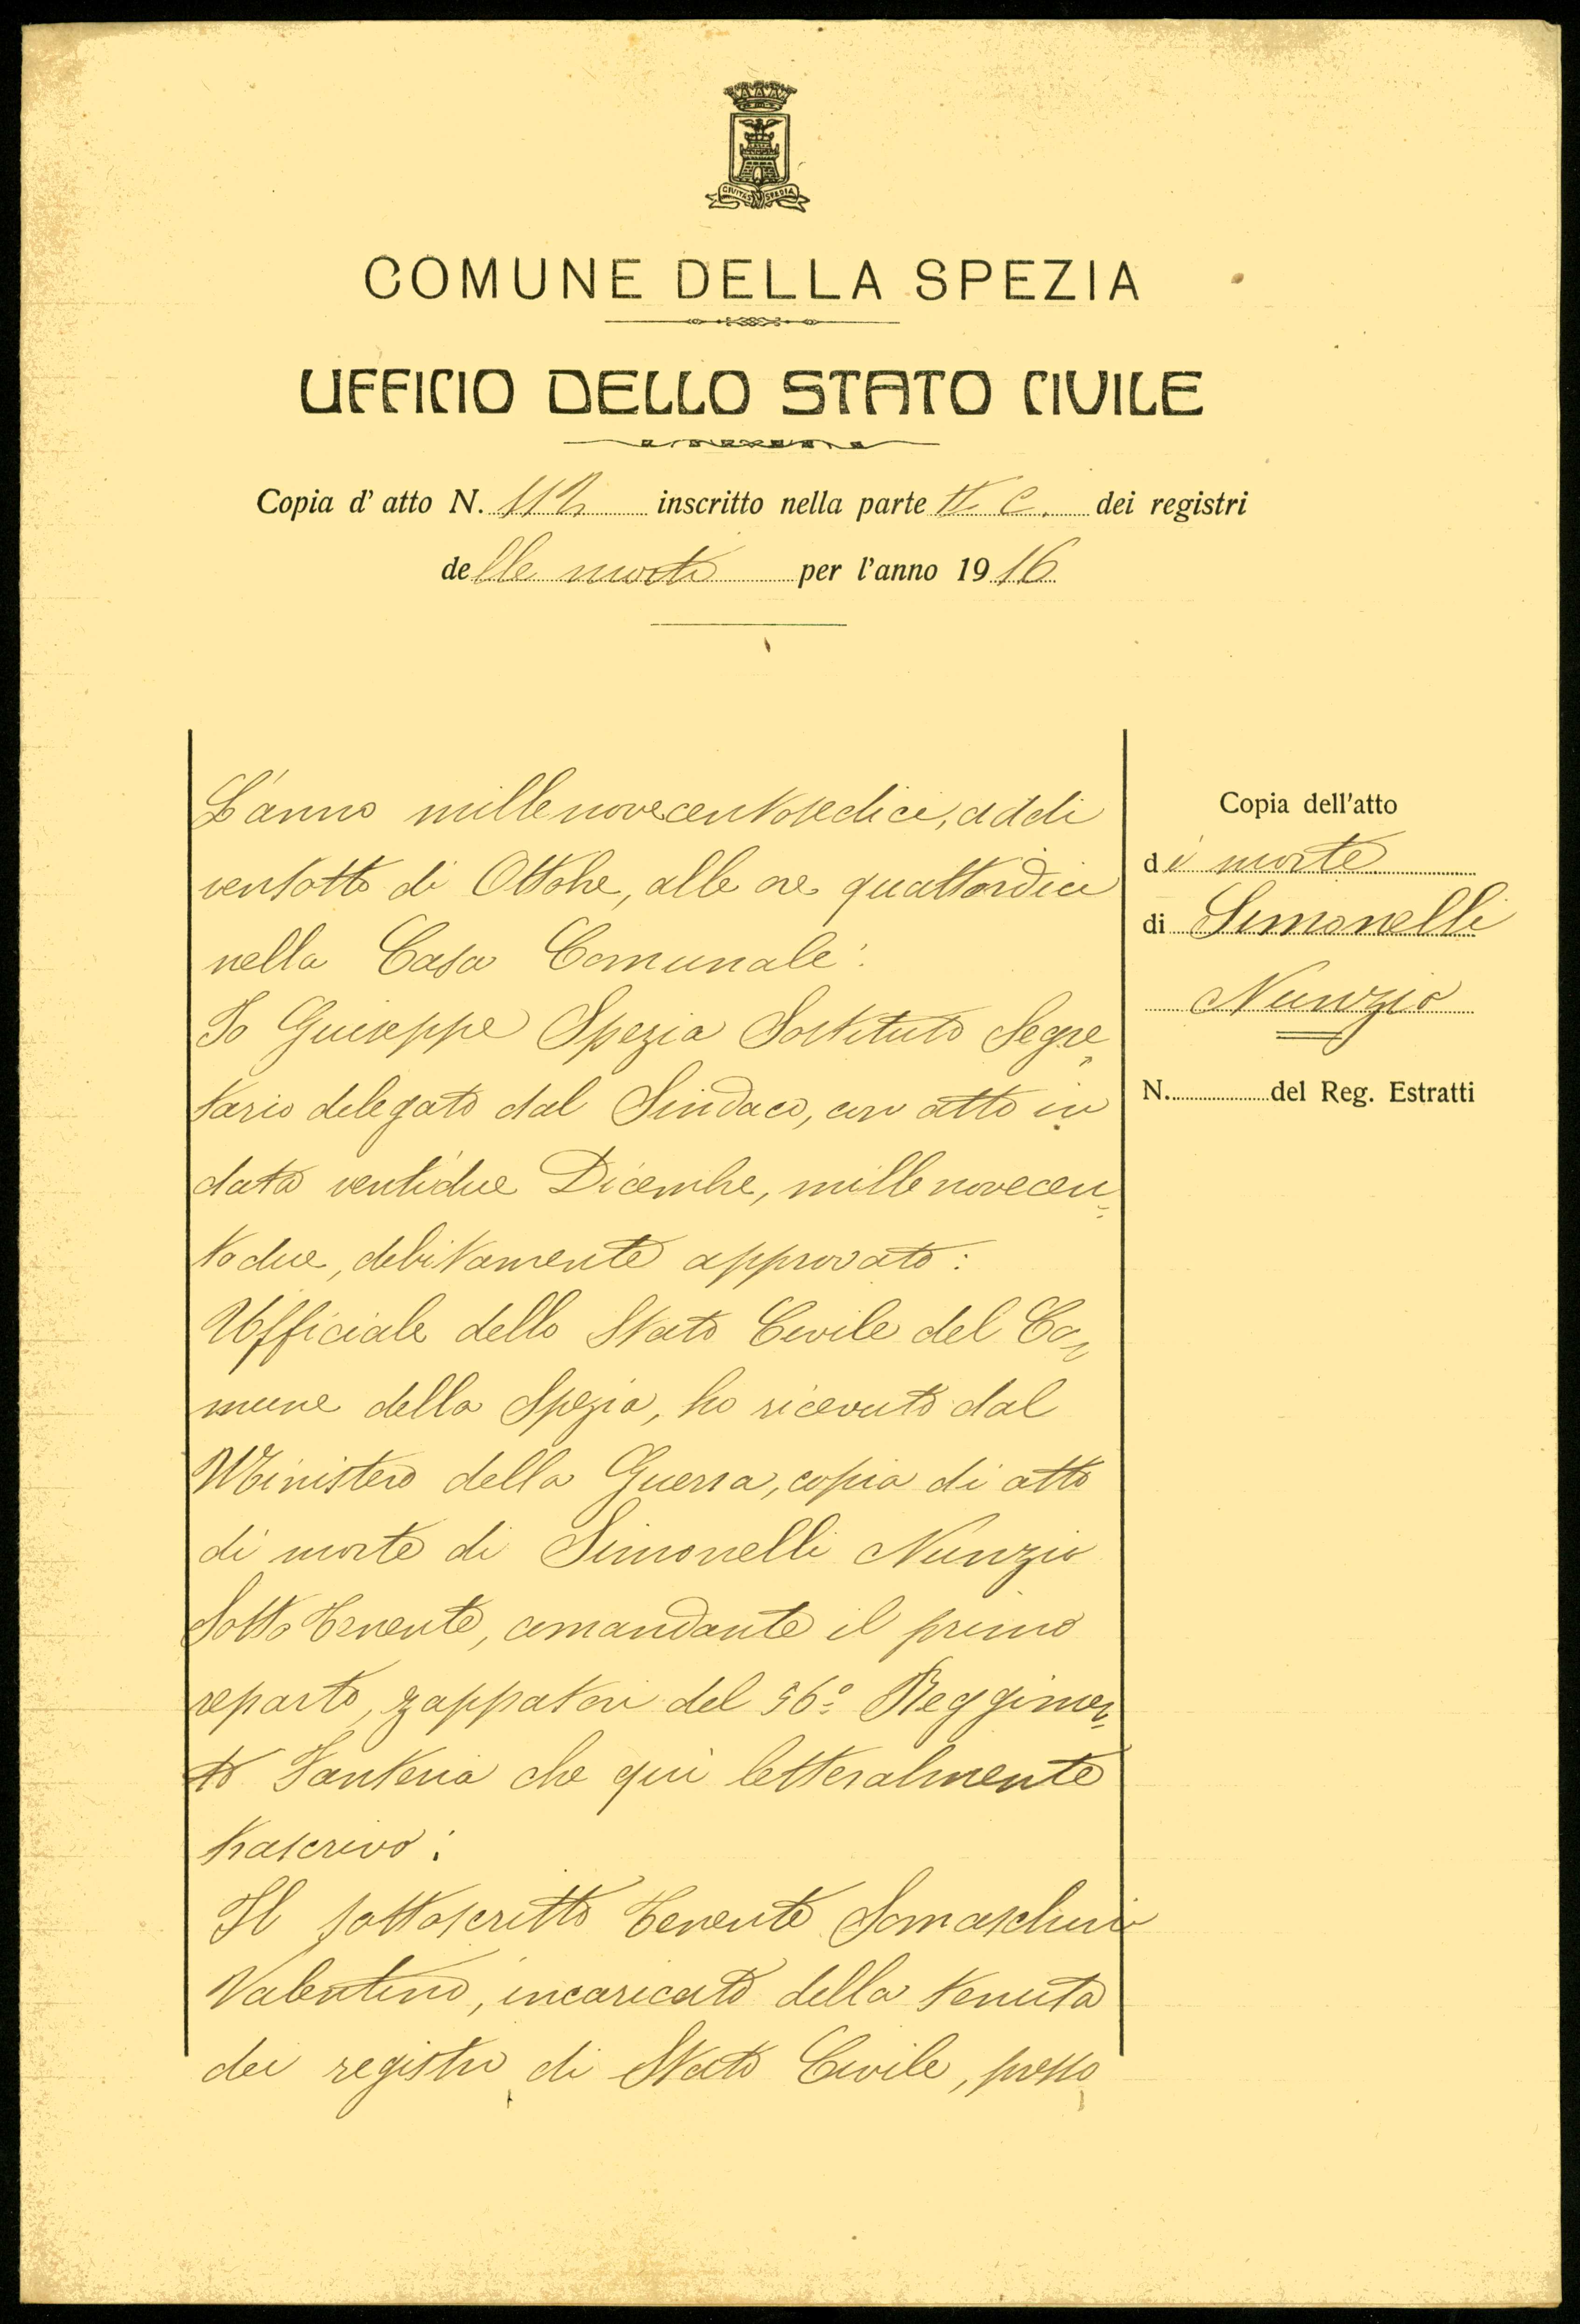 CIVITAS SPEDIA
COMUNE DELLA SPEZIA
UFFICIO DELLO STATO CIVILE
Copia d' atto N. 112 inscritto nella parte II C. dei registri
delle morti per l'anno 1916
L'anno millenovecentosedici, addi
ventotto di Ottobre, alle ore quattordici
nella Casa Comunale:
Io Guiseppe Spezia Sostituto Segre
tario delegato dal Sindaco, con atto in
data ventidue Dicembre, millenovecen-
todue, debitamente approvato:
Ufficiale dello Stato Civile del Co-
mune della Spezia, ho ricevuto dal
Ministero della Guerra, copia di atto
di morte di Simonelli Nunzio
Sotto Tenente, comandante il primo
reparto, zappatori del 56º Reggimen-
to Fanteria che qui letteralmente
trascrivo:
Il sottoscritto Tenente Somaschini
Valentino, incaricato della tenuta
dei registri di Stato Civile, presso
Copia dell'atto
di morte
di Simonelli
Nunzio
N. del Reg. Estratti